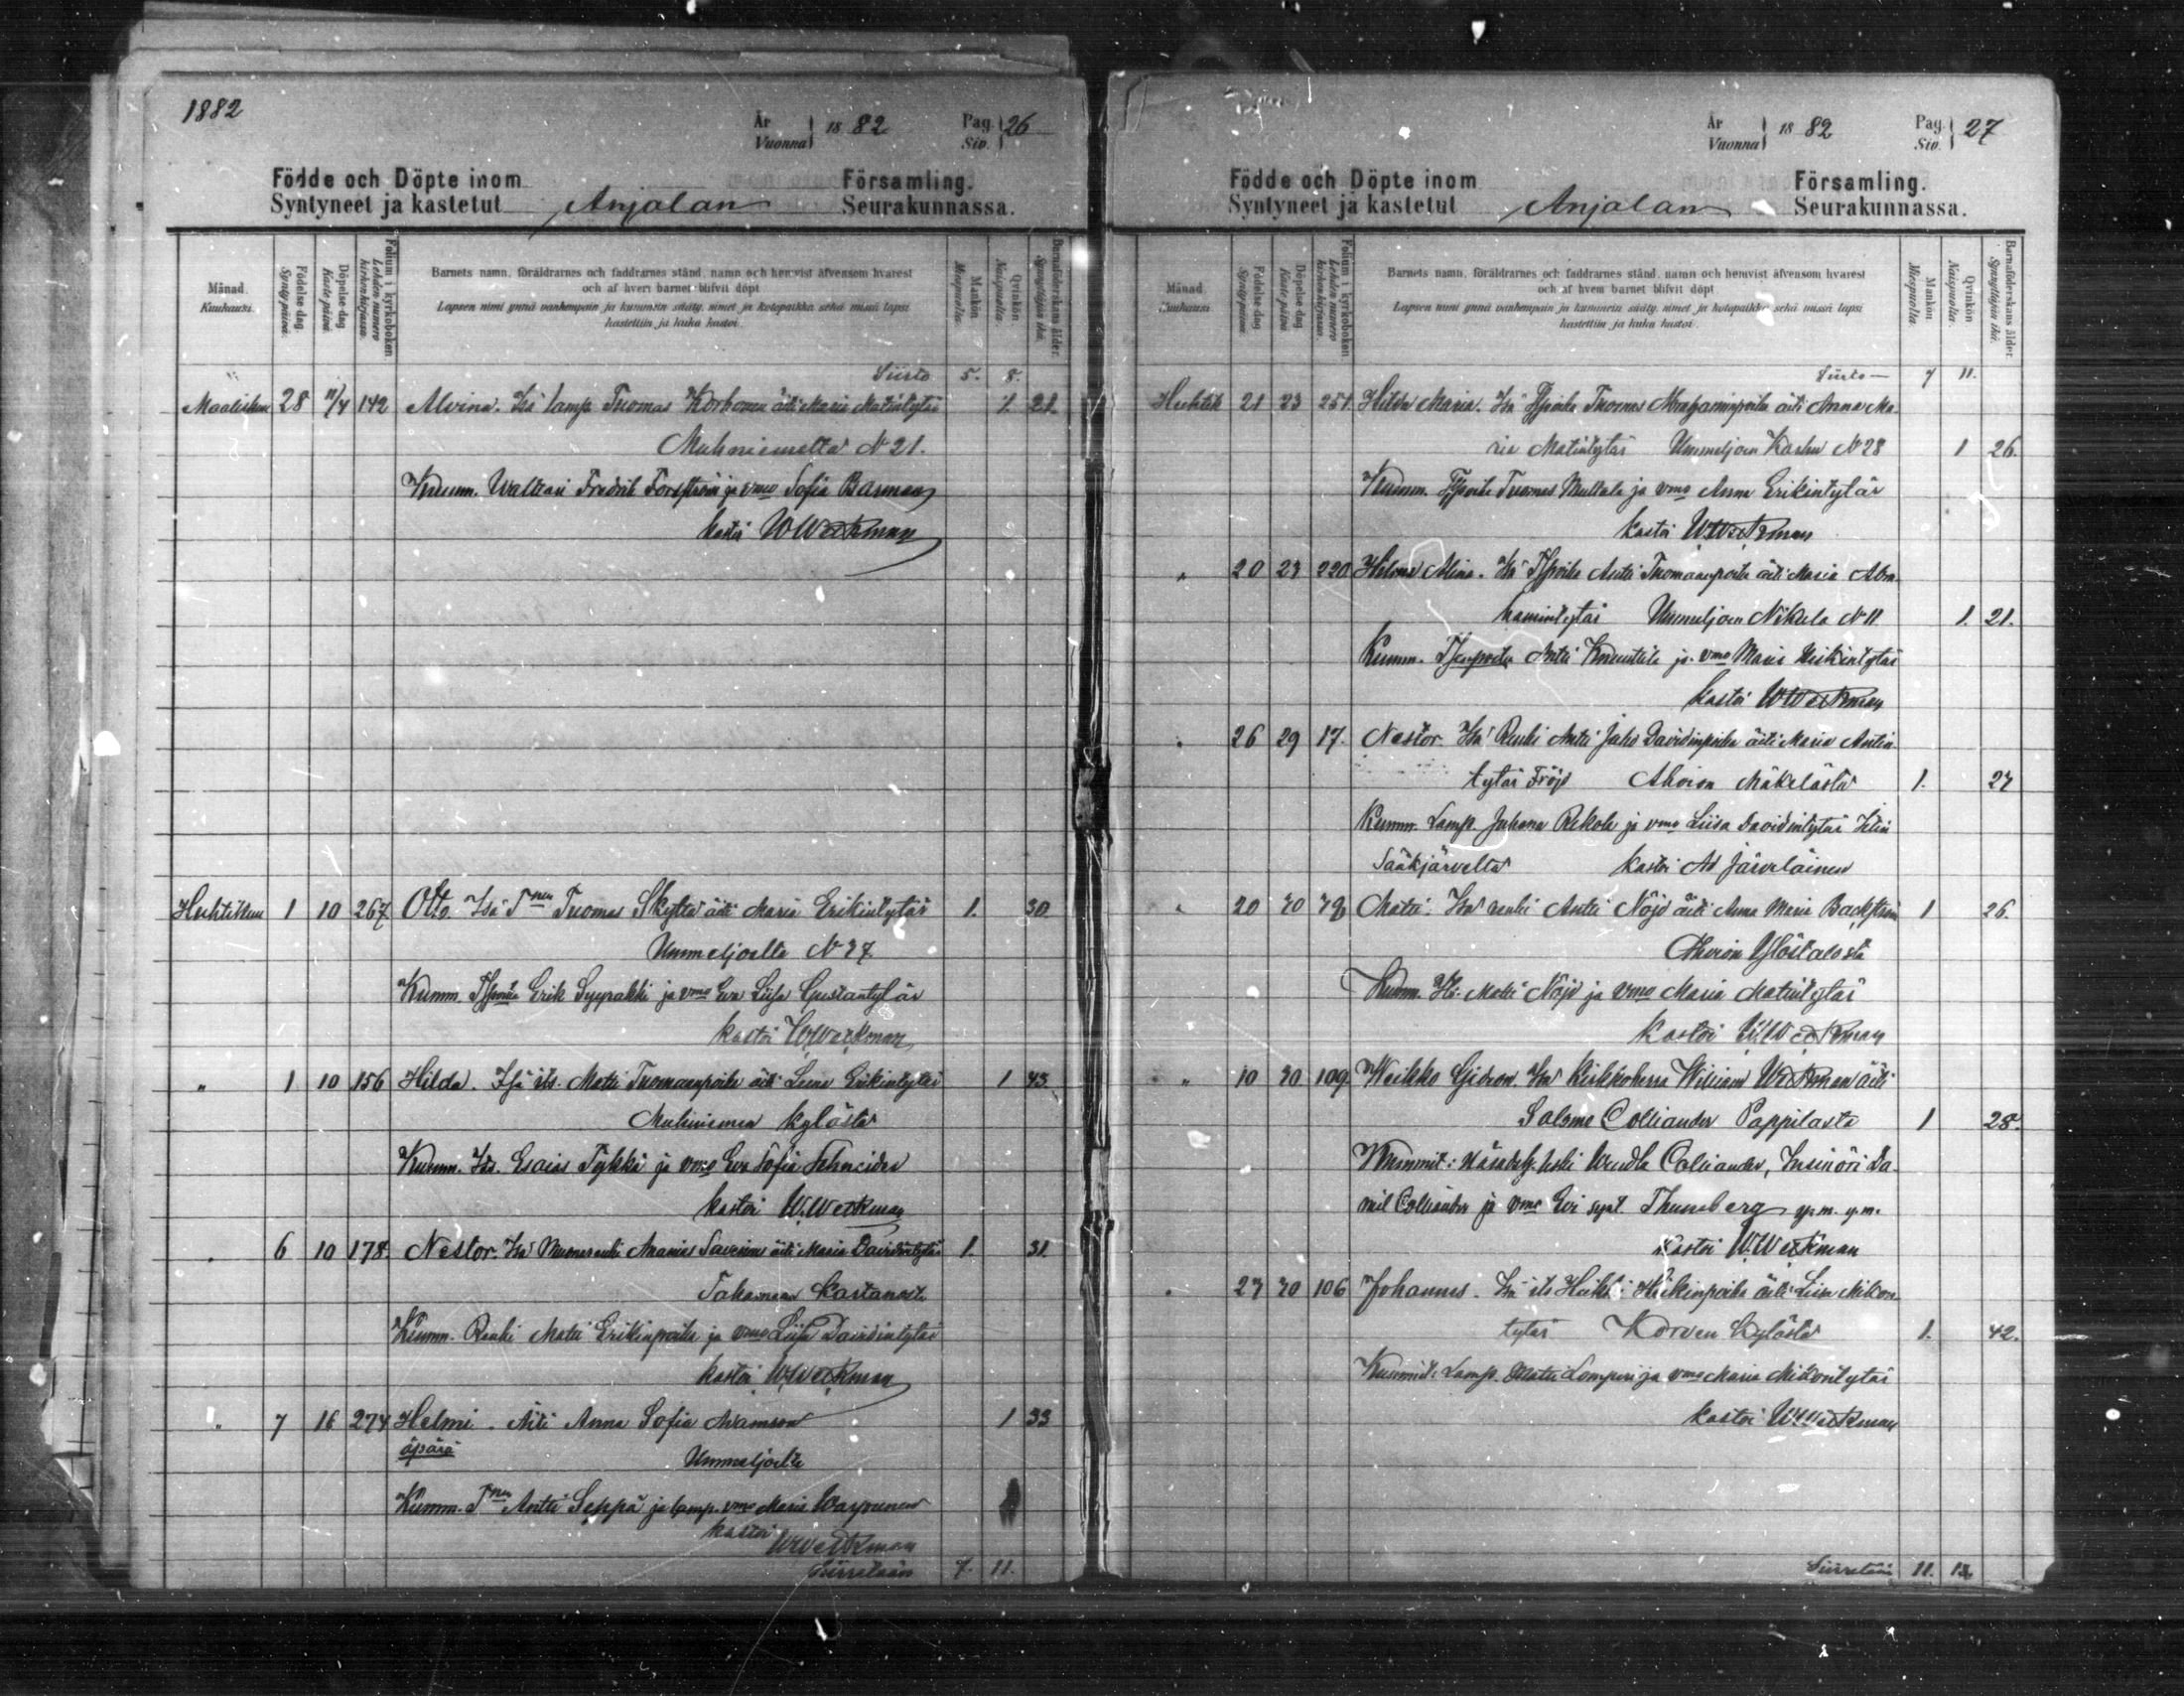 1882
År
Vuonna
18 82
Pag.
Siv.
26
Födde och Döpte inom Församling.
Syntyneet ja kastetut Anjalan Seurakunnassa.
Månad.
Kuukausi.
Födelse dag
Synty päivä.
Döpelse dag
Kaste päivä.
Folium i kyrkoboken
Lehden numero kirkonkirjassa.
Barnets namn, föräldrarnes och faddrarnes stånd, namn och hemvist äfvensom hvarest
och af hvem barnet blifvit döpt
Lapsen nimi ynnä vanhempain ja kummein sääty, nimet ja kotopaikka sekä missä lapsi
kastettiin ja kuka kastoi.
Mankön
Miespuolia.
Qvinkön
Naispuolia.
Barnaföderskans ålder.
Synnyttäjän ikä.
Siirto 5. 8.
Maaliskuu 28 11/4 142 Alvina. Isä lamp. Tuomas Korhonen äiti Maria Matintytär 1. 21.
Muhniemeltä N 21.
Kumm. Waltteri Fredrik Forsström ja vmo Sofia Barman
kastoi W Weckman
Huhtikuu 1 10 267 Otto. Isä Tnen Tuomas Skyttä äiti Maria Erikintytär 1. 30
Ummeljoelta N 37.
Kumm. Tspoika Erik Sypräkki ja vmo Eva Liisa Gustantytär
kastoi W Weckman
" 1 10 156 Hilda. Isä its. Matti Tuomaanpoika äiti Leena Erikintytär 1 43.
Muhniemen kylästä
Kumm. Its. Esaias Tykki ja vmo Eva Sofia Schneider
kastoi W. Weckman
" 6 10 178. Nestor. Isä Muonarenki Ananias Saverinus äiti Maria Davidintytär 1. 31.
Takamaan Kartanost.
Kumm. Renki Matti Erikinpoika ja vmo Liisa Davidintytär
kastoi W Weckman
" 7 16 274 Helmi. Äiti Anna Sofia Adamson 1 33
äpärä
Ummeljoelta
Kumm. Tnen Antti Seppä ja lamp. vmo Maria Wäyrynen
kastoi
W Weckman
Siirretään 7. 11.
År
Vuonna
18 82
Pag.
Siv.
27
Födde och Döpte inom Församling.
Syntyneet ja kastetut Anjalan Seurakunnassa.
Månad.
Kuukausi
Födelse dag
Synty päivä.
Döpelse dag
Kaste päivä
Folium i kyrkoboken
Lehden numero kirkonkirjassa.
Barnets namn, föräldrarnes och faddrarnes stånd, namn och hemvist äfvensom hvarest
och af hvem barnet blifvit döpt
Lapsen nimi ynnä vanhempain ja kummein sääty, nimet ja kotopaikka sekä missä lapsi
kastettiin ja kuka kastoi.
Mankön
Miespuolia.
Qvinkön
Naispuolia.
Barnaföderskans ålder.
Synnyttäjän ikä.
Siirto — 7 11.
Huhtik 21 23 251 Hilda Maria. Isä Tspoika Thomas Abrahaminpoika äiti Anna Ma-
ria Matintytär Ummeljoen N 28 1 26.
Kumm. Tspoika Tuomas Mullala ja vmo Anna Erikintytär
kastoi W. Weckman
" 20 23 220 Hilma Alina. Isä Tspoika Antti Tuomaanpoika äiti Maria Abra-
hamintytär Ummeljoen Nikula N 11 1. 21.
Kumm. Antti Knuutila ja vmo Maria Heikintytär
kastoi W Weckman
" 26 29 17. Nestor. Isä Renki Antti Juho Davidinpoika äiti Maria Antin-
tytär Fröjd Ahvion Mäkelästä 1. 27
Kumm. Lamp. Juhana Rekola ja vmo Liisa Davidintytär Iitin
Sääkjärveltä kastoi Ad Järveläinen
" 20 30 Matti. Isä renki Antti Nöjd äiti Anna Maria Backström 1 26.
Ahvion Yöstalosta
Kumm. Its. Matti Nöjd ja vmo Maria Matintytär
kastoi W. Weckman
" 10 30 109. Weikko Gideon. Isä Kirkkoherra William Weckman äiti
Salome Colliander Pappilasta 1 28.
Kummit: leski Wendla Colliander, Insinöri Da-
niel Colliander ja vmo Evi synt. Thuneberg y. m. y. m.
kastoi W. Weckman
" 27 30 106 Johannes. Isä its Heikki Heikinpoika äiti Liisa Mikon-
tytär Korven Kylästä 1. 42.
Kummit: Lamp. Matti Lomperi ja vmo Maria Mikontytär
kastoi W Weckman
Siirretään 11. 13